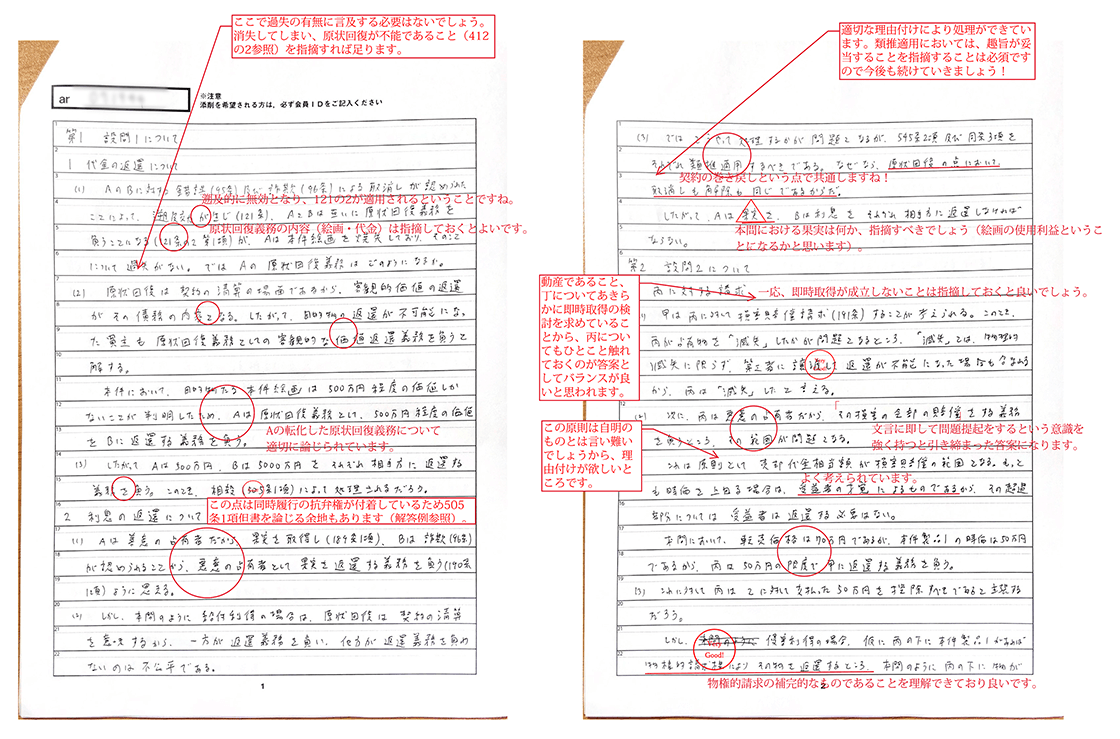 ここで過失の有無に言及する必要はないでしょう。
消失してしまい、原状回復が不能であること（412
の2参照）を指摘すれば足ります。
ar
※注意
添削を希望される方は、必ず会員IDをご記入ください
第1 設問1について
1 代金の返還について
(1) AのBに対する錯誤(95条)及び詐欺(96条)による取消しが認められた
遡及的に無効となり、121の2が適用されるということですね。
ことによって、 が生じ(121条)、AとBは互いに原状回復義務を
原状回復義務の内容（絵画・代金）は指摘しておくとよいです。
負うことになる(121条の2第1項)が、Aは本件絵画を焼失しており、そのこと
について過失がない。ではAの原状回復義務はどのようになるか。
(2) 原状回復は契約の清算の場面であるから、客観的価値の返還
がその債務の内容となる。したがって、目的物の返還が不可能になっ
た買主も原状回復義務としての客観的な価値返還義務を負うと
解する。
本件において、目的物たる本件絵画は500万円程度の価値しか
ないことが判明したため、Aは原状回復義務として、500万円程度の価値
Aの転化した原状回復義務について
をBに返還する義務を負う。
適切に論じられています。
(3) したがってAは500万円、Bは5000万円をそれぞれ相手方に返還する
義務を負う。このとき、相殺(505条1項)によって処理されるだろう。
この点は同時履行の抗弁権が付着しているため505
条1項但書を論じる余地もあります（解答例参照）。
2 利息の返還について
(1) Aは善意の占有者だから、果実を取得し(189条1項)、Bは詐欺(96条)
が認められることから、悪意の占有者として果実を返還する義務を負う(190条
1項)ように思える。
(2) しかし、本問のように給付利得の場合は、原状回復は契約の清算
を意味するから、一方が返還義務を負い、他方が返還義務を負わ
ないのは不公平である。
1
適切な理由付けにより処理ができてい
ます。類推適用においては、趣旨が妥
当することを指摘することは必須です
ので今後も続けていきましょう！
(3) ではどうやって処理するかが問題となるが、545条2項及び同条3項を
それぞれ類推適用するべきである。なぜなら、原状回復の点において、
契約の巻き戻しという点で共通しますね！
取消しも解除も同じであるからだ。
したがって、Aは果実を、Bは利息をそれぞれ相手方に返還しなければ
本問における果実は何か、指摘すべきでしょう（絵画の使用利益というこ
とになるかと思います）。
ならない。
第2 設問2について
動産であること、
丁についてあきら
かに即時取得の検
討を求めているこ
とから、丙につい
てもひとこと触れ
ておくのが答案と
してバランスが良
いと思われます。
丙に対する請求
一応、即時取得が成立しないことは指摘しておくと良いでしょう。
甲は丙に対して損害賠償請求(191条)することが考えられる。このとき、
丙が占有物を「滅失」したかが問題となるところ、「滅失」とは、物理的
滅失に限らず、第三者に譲渡して返還が不能になった場合も含まれる
から、丙は「滅失」したと言える。
(2) 次に、丙は悪意の占有者だから、「その損害の全部の賠償をする義務」
この原則は自明の
ものとは言い難い
でしょうから、理
由付けが欲しいと
ころです。
を負うところ、その範囲が問題となる。
文言に即して問題提起をするという意識を
強く持つと引き締まった答案になります。
これは原則として売却代金相当額が損害賠償の範囲となる。もっと
よく考えられています。
も時価を上回る場合は、受益者の才覚によるものであるから、その超過
部分については受益者は返還する必要はない。
本問において、転売価格は70万円であるが、本件製品1の時価は50万円
であるから、丙は50万円の限度で甲に返還する義務を負う。
(3) これに対して丙は乙に対して支払った50万円を控除すべきであると主張する
だろう。
しかし、 侵害利得の場合、仮に丙の下に本件製品1があれば
Good!
物権的請求権によりその物を返還するところ、本問のように丙の下に物が
物権的請求の補完的なものであることを理解できており良いです。